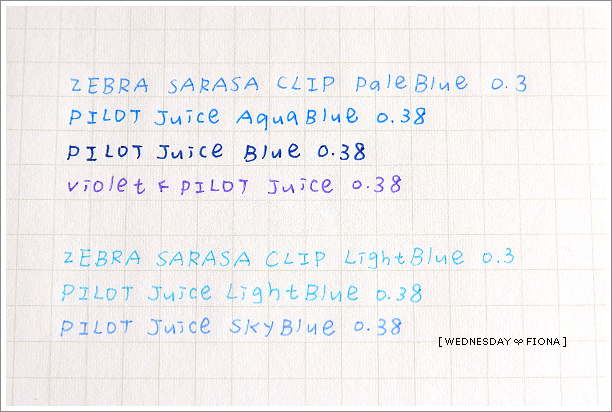 ZEBRA SARASA CLIP PaleBlue 0.3
PILOT Juice AquaBlue 0.38
PILOT Juice Blue 0.38
violet ← PILOT Juice 0.38
ZEBRA SARASA CLIP LightBlue 0.3
PILOT Juice LightBlue 0.38
PILOT Juice SkyBlue 0.38
[WEDNESDAY ❤ FIONA]